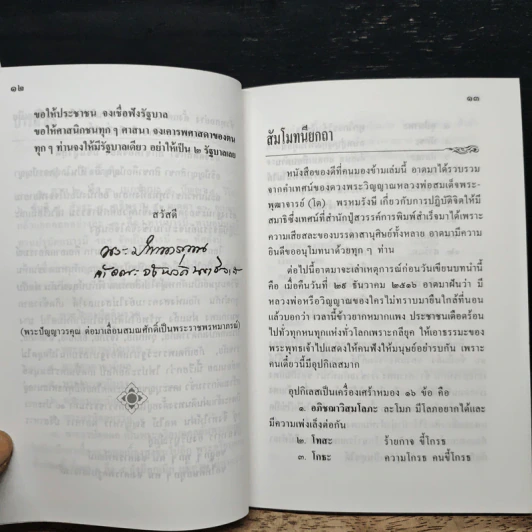 ๑๒
ขอให้ประชาชน จงเชื่อฟังรัฐบาล
ขอให้ศาสนิกชนทุก ๆ ศาสนา จงเคารพศาสดาของตน
ทุก ๆ ท่านจงให้มีรัฐบาลเดียว อย่าให้เป็น ๒ รัฐบาลเลย
สวัสดี
(พระปัญญาวรคุณ ต่อมาเลื่อนสมณศักดิ์เป็นพระราชพรหมาภรณ์)
๑๓
สัมโมทนียกถา
หนังสือของดีที่คนมองข้ามเล่มนี้ อาตมาได้รวบรวม
จากคำเทศน์ของดวงพระวิญญาณหลวงพ่อสมเด็จพระ-
พุฒาจารย์ (โต) พรหมรังษี เกี่ยวกับการปฏิบัติจิตให้มี
สมาธิซึ่งเทศน์ที่สำนักปู่สวรรค์การพิมพ์สำเร็จมาได้เพราะ
ความเสียสละของบรรดาสานุศิษย์ทั้งหลาย อาตมามีความ
ยินดีขออนุโมทนาด้วยทุก ๆ ท่าน
ต่อไปนี้อาตมาจะเล่าเหตุการณ์ก่อนวันเขียนบทนำนี้
คือ เมื่อคืนวันที่ ๒๙ ธันวาคม ๒๕๑๖ อาตมาฝันว่า มี
หลวงพ่อหรือวิญญาณของใครไม่ทราบมายืนใกล้ที่นอน
แล้วบอกว่า เวลานี้ข้าวยากหมากแพง ประชาชนเดือดร้อน
ไปทั่วทุกหนทุกแห่งทั่วโลกเพราะกลียุค ให้เอาธรรมะของ
พระพุทธเจ้าไปแสดงให้คนฟังให้มนุษย์อย่ารบกัน เพราะ
คนเดี๋ยวนี้มีอุปกิเลสมาก
อุปกิเลสเป็นเครื่องเศร้าหมอง ๑๖ ข้อ คือ
๑. อภิชฌาวิสมโลภะ ละโมภ มีโลภอยากได้และ
มีความเพ่งเล็งต่อกัน
๒. โทสะ ร้ายกาจ ขี้โกรธ
๓. โกธะ ความโกรธ คนขี้โกรธ